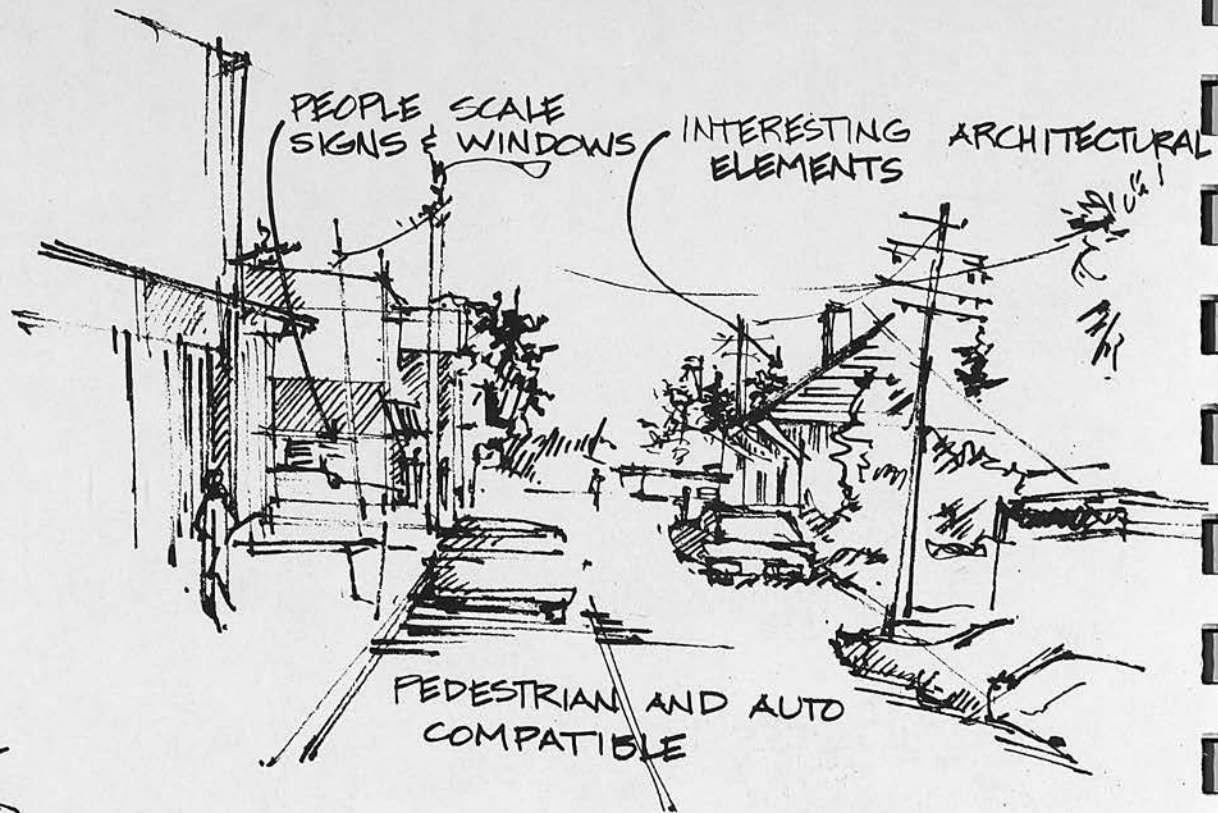 PEOPLE SCALE
SIGNS & WINDOWS
INTERESTING ARCHITECTURAL
ELEMENTS
PEDESTRIAN AND AUTO
COMPATIBLE